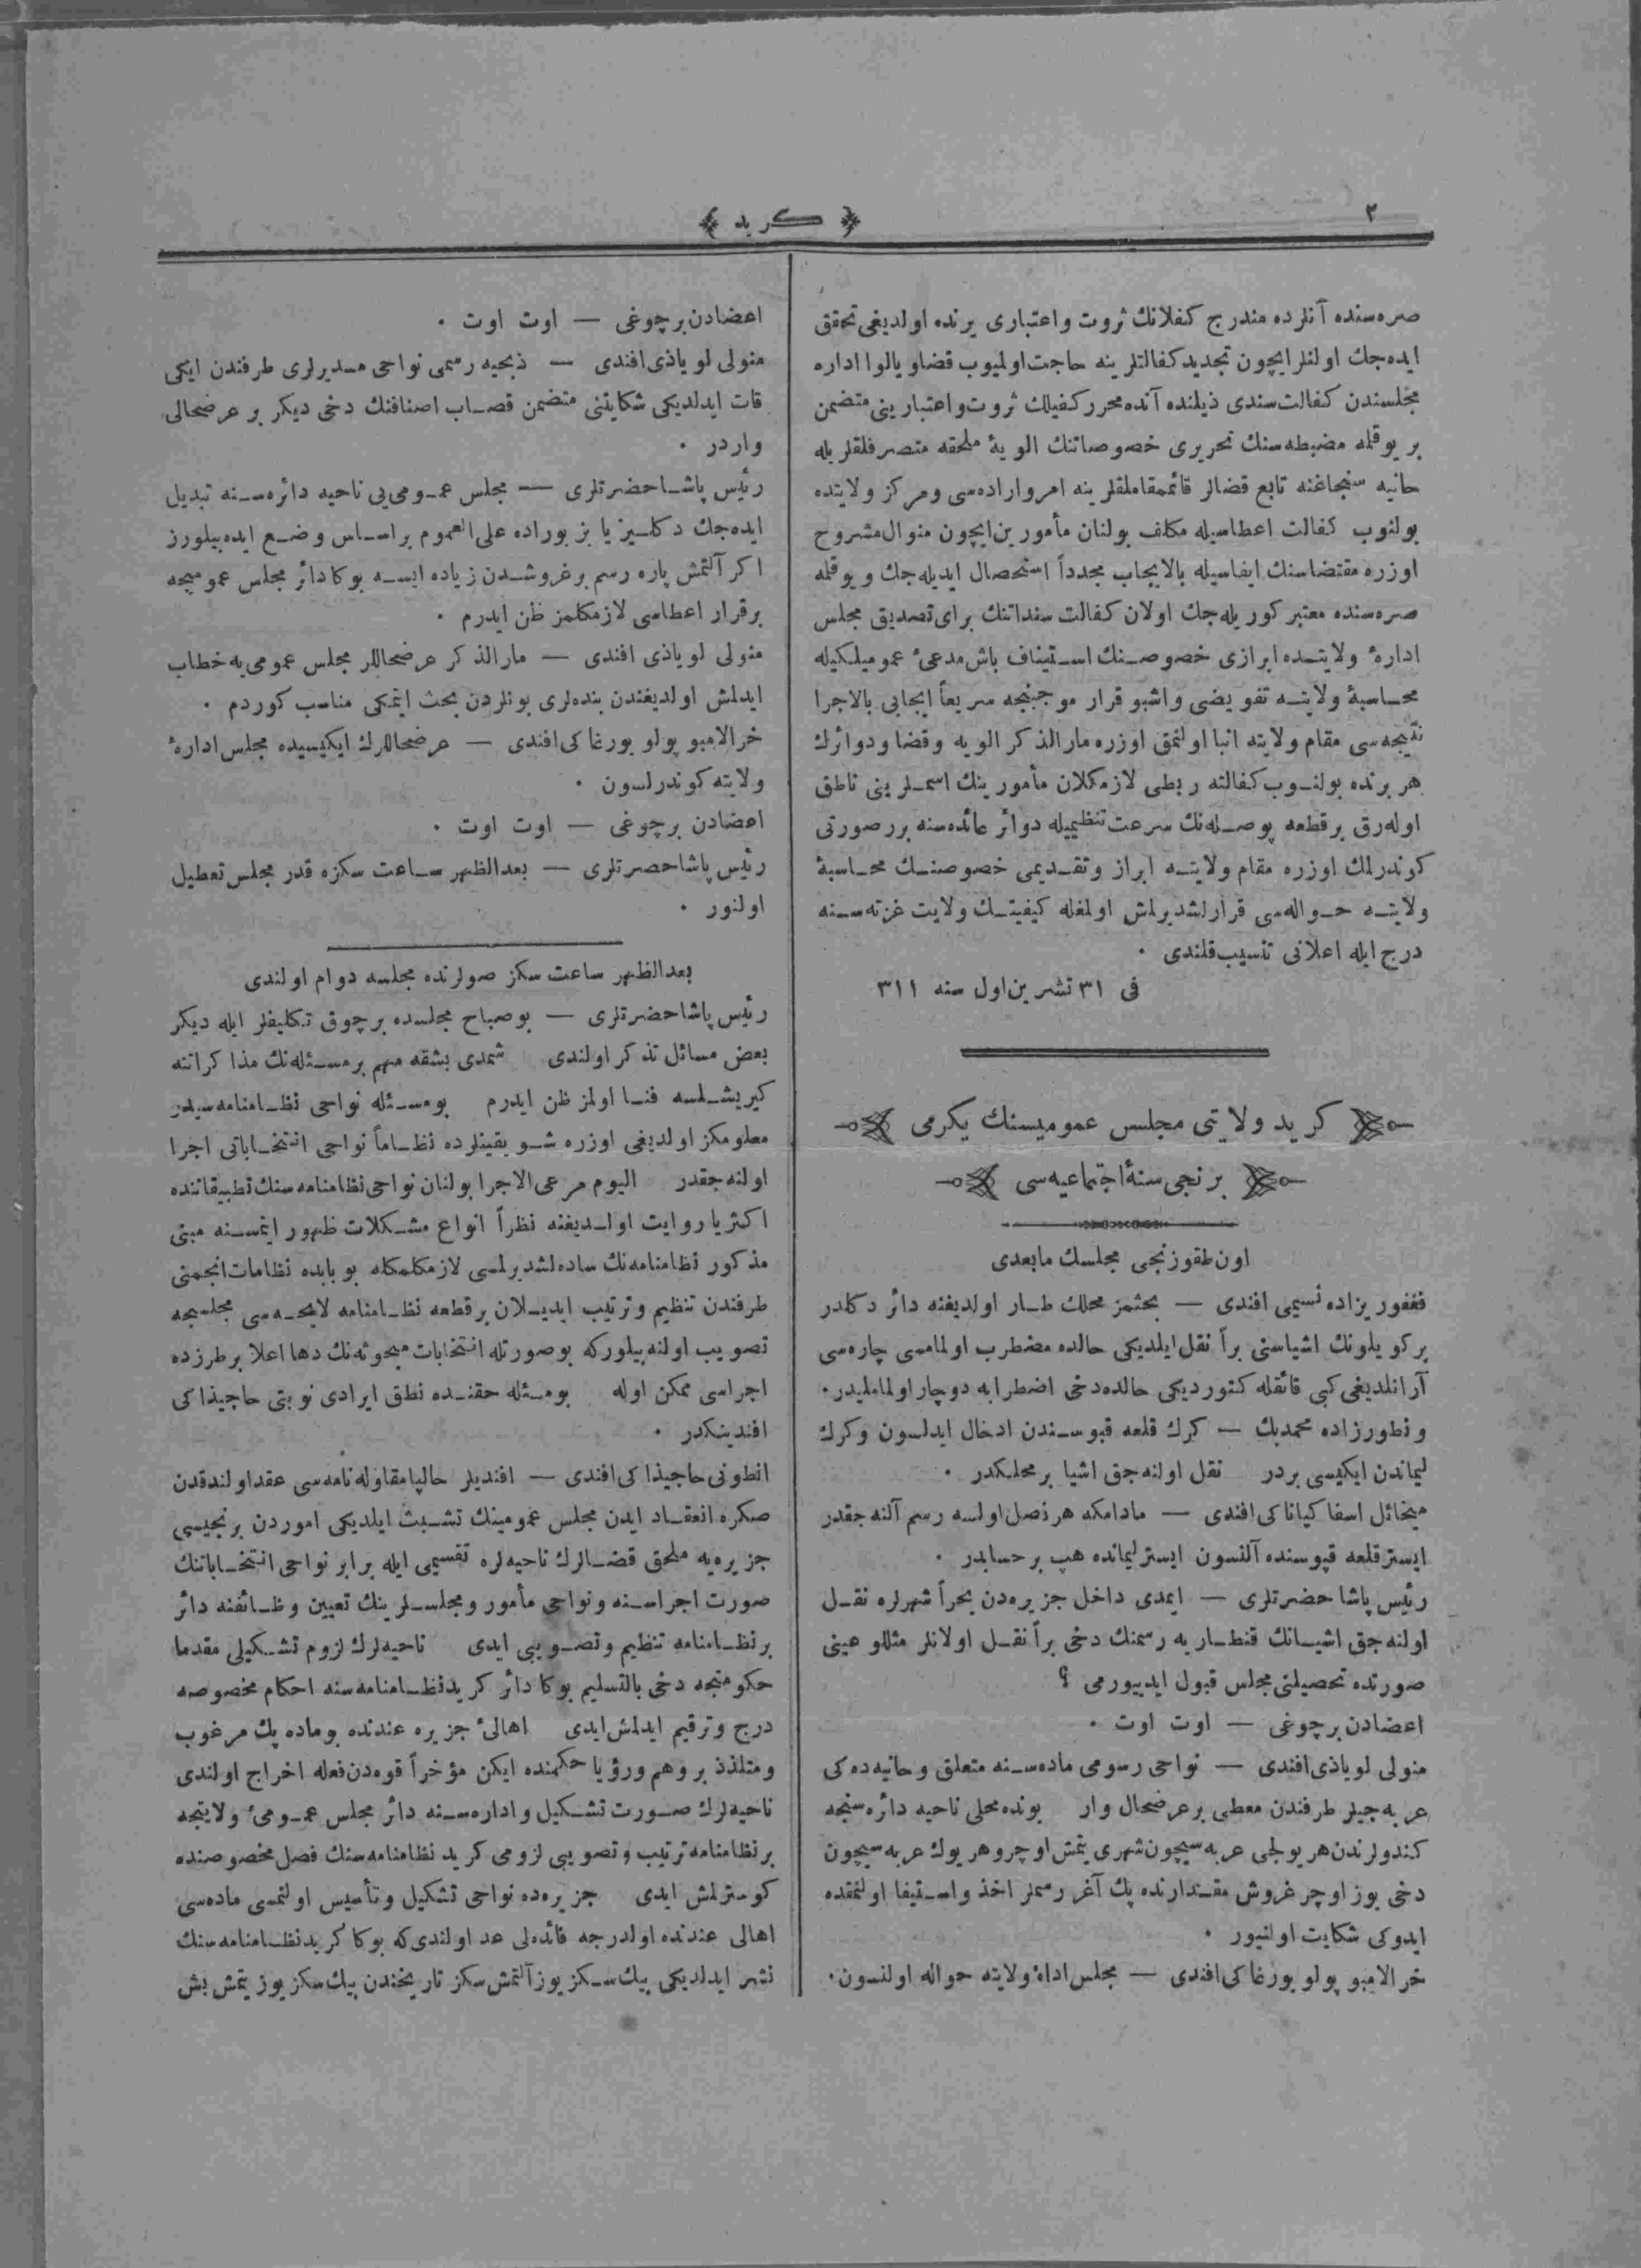 ٢
﴿ كريد ﴾
صره‌سنده آنلرده مندرج كفلانك ثروت واعتبارى يرنده اولديغى تحقق
ايده‌جك اولنلر ايچون تجديد كفالتلرينه حاجت اولميوب قضا ويا لوا اداره
مجلسندن كفالت سندى ذيلنده آنده محرر كفيلك ثروت و اعتبارينى متضمن
بر يوقلمه مضبطه‌سنك تحريرى خصوصاتنك الويهٔ ملحقه متصرفلقلريله
حانيه سنجاغنه تابع قضالر قائممقاملقلرينه امر واراده‌سى ومركز ولايتده
بولنوب كفالت اعطاسيله مكلف بولنان مأمورين ايچون منوال مشروح
اوزره مقتضاسنك ايفاسيله بالايجاب مجدداً استحصال ايديله‌جك و يوقلمه
صره‌سنده معتبر كوريله‌جك اولان كفالت سنداتنك براى تصديق مجلس
ادارهٔ ولايتـده ابرازى خصوصـنك اسـتيناف باش مدعىٔ عموميلكيله
محـاسبهٔ ولايتـه تفويضى واشبو قرار موجبنجه سريعاً ايجابى بالاجرا
نتيجه‌سى مقام ولايته انبا اولنمق اوزره مارالذكر الويه وقضا ودوائرك
هر برنده بولنـوب كفالته ربطى لازمكلان مأمورينك اسمـلرينى ناطق
اوله‌رق بر قطعه پوصـله‌نك سرعت تنظيميله دوائر عائده‌سنه برر صورتى
كوندرلمك اوزره مقام ولايتـه ابراز وتقـديمى خصوصنـك محـاسبهٔ
ولايتـه حـواله‌سى قرارلشديرلمش اولمغله كيفيتـك ولايت غزته‌سـنه
درج ايله اعلانى تنسيب قلندى ٠
فى ٣١ تشرين اول سنه ٣١١
كريد ولايتى مجلس عموميسنك يكرمى
برنجى سنهٔ اجتماعيه‌سى
اون طقوزنجى مجلسك مابعدى
فغفوريزاده نسيمى افندى — بحثمز محلك طـار اولديغنه دائر دكلدر
بر كويلونك اشياسنى براً نقل ايلديكى حالده مضطرب اولمامسى چاره‌سى
آرانلديغى كبى قائقله كتورديكى حالده دخى اضطرابه دوچار اولماملیدر٠
ونطورزاده محمدبك — كرك قلعه قپوسـندن ادخال ايدلسون وكرك
ليماندن ايكيسى بردر نقل اولنه‌جق اشيا بر محلكدر ٠
ميخائل اسفاكياناكى افندى — مادامكه هر نصل اولسه رسم آلنه‌جقدر
ايستر قلعه قپوسنده آلنسون ايستر ليمانده هپ بر حسابدر ٠
رئيس پاشا حضرتلرى — ايمدى داخل جزيره‌دن بحراً شهرلره نقـل
اولنه‌جق اشيـانك قنطـاريه رسمنك دخى براً نقـل اولانلر مثللو عينى
صورتده تحصيلنى مجلس قبول ايدييورمى ؟
اعضادن برچوغى — اوت اوت ٠
منولى لوياذى افندى — نواحى رسومى ماده‌سـنه متعلق وحانيه‌ده‌كى
عربه‌جيلر طرفندن معطى بر عرضحال وار بونده محلى ناحيه دائره‌سنجه
كندولرندن هر يولجى عربه‌سيچون شهرى يتمش اوچر وهر يوك عربه‌سيچون
دخى يوز اوچر غروش مقـدارنده پك آغر رسملر اخذ واسـتيفا اولنمقده
ايدوكى شكايت اولنيور ٠
خرالامبو پولو يورغاكى افندى — مجلس ادارهٔ ولايته حواله اولنسون٠
اعضادن برچوغى — اوت اوت ٠
منولى لوياذى افندى — ذبحيه رسمى نواحى مـديرلرى طرفندن ايكى
قات ايدلديكى شكايتنى متضمن قصـاب اصنافنك دخى ديكر بر عرضحالى
واردر ٠
رئيس پاشـاحضرتلرى — مجلس عمـومى‌يى ناحيه دائره‌سـنه تبديل
ايده‌جك دكلـيز يا بز بوراده على العموم بر اسـاس وضـع ايده‌بيلورز
اكر آلتمش پاره رسم بر غروشـدن زياده ايسـه بوكا دائر مجلس عموميجه
بر قرار اعطاسى لازمكلمز ظن ايدرم ٠
منولى لوياذى افندى — مارالذكر عرضحاللر مجلس عمومى‌يه خطاب
ايدلمش اولديغندن بنده‌لرى بونلردن بحث ايتمكى مناسب كوردم ٠
خرالامبو پولو يورغاكى افندى — عرضحاللرك ايكيسيده مجلس ادارهٔ
ولايته كوندرلسون ٠
اعضادن برچوغى — اوت اوت ٠
رئيس پاشا حضرتلرى — بعدالظهر سـاعت سكزه قدر مجلس تعطيل
اولنور ٠
بعدالظهر ساعت سكز صولرنده مجلسه دوام اولندى
رئيس پاشا حضرتلرى — بو صباح مجلسده برچوق تكليفلر ايله ديكر
بعض مسائل تذكر اولندى شمدى بشقه مهم بر مسـئله‌نك مذاكراتنه
كيريشـلسه فنـا اولمز ظن ايدرم بو مسـئله نواحى نظـامنامه‌سيدر
معلومكز اولديغى اوزره شـو يقينلرده نظـاماً نواحى انتخـاباتى اجرا
اولنه‌جقدر اليوم مرعى الاجرا بولنان نواحى نظامنامه‌سنك تطبيقاتنده
اكثريا روايت اولـديغنه نظراً انواع مشـكلات ظهور ايتمسـنه مبنى
مذكور نظامنامه‌نك ساده‌لشديرلمسى لازمكلمكله بو بابده نظامات انجمنى
طرفندن تنظيم وترتيب ايديـلان بر قطعه نظـامنامه لايحـه‌سى مجلسجه
تصويب اولنه‌بيلوركه بو صورتله انتخابات مبحوثه‌نك دها اعلا بر طرزده
اجراسى ممكن اوله بو مسئله حقنـده نطق ايرادى نوبتى حاجيذاكى
افندينكدر ٠
انطونى حاجيذاكى افندى — افنديلر حالپا مقاوله‌نامه‌سى عقد اولندقدن
صكره انعقـاد ايدن مجلس عمومينك تشـبث ايلديكى اموردن برنجيسى
جزيره‌يه ملحق قضـالرك ناحيه‌لره تقسيمى ايله برابر نواحى انتخـاباتنك
صورت اجراسـنه ونواحى مأمور ومجلسـلرينك تعيين وظـائفنه دائر
بر نظـامنامه تنظيم وتصـويبى ايدى ناحيه‌لرك لزوم تشـكيلى مقدما
حكومتجه دخى بالتسليم بوكا دائر كريد نظـامنامه‌سنه احكام مخصوصه
درج وترقيم ايدلمش ايدى اهالىٔ جزيره عندنده بو ماده پك مرغوب
ومتلذذ بر وهم ورؤيا حكمنده ايكن مؤخراً قوه‌دن فعله اخراج اولندى
ناحيه‌لرك صـورت تشـكيل واداره‌سـنه دائر مجلس عمـومىٔ ولايتجه
بر نظامنامه ترتيب وتصويبى لزومى كريد نظامنامه‌سنك فصل مخصوصنده
كوسترلمش ايدى جزيره‌ده نواحى تشكيل وتأسيس اولنمسى ماده‌سى
اهالى عندنده اولدرجه فائده‌لى عد اولندى‌كه بوكا كريد نظـامنامه‌سنك
نشر ايدلديكى بيك سـكز يوز آلتمش سكز تاريخندن بيك سكز يوز يتمش بش